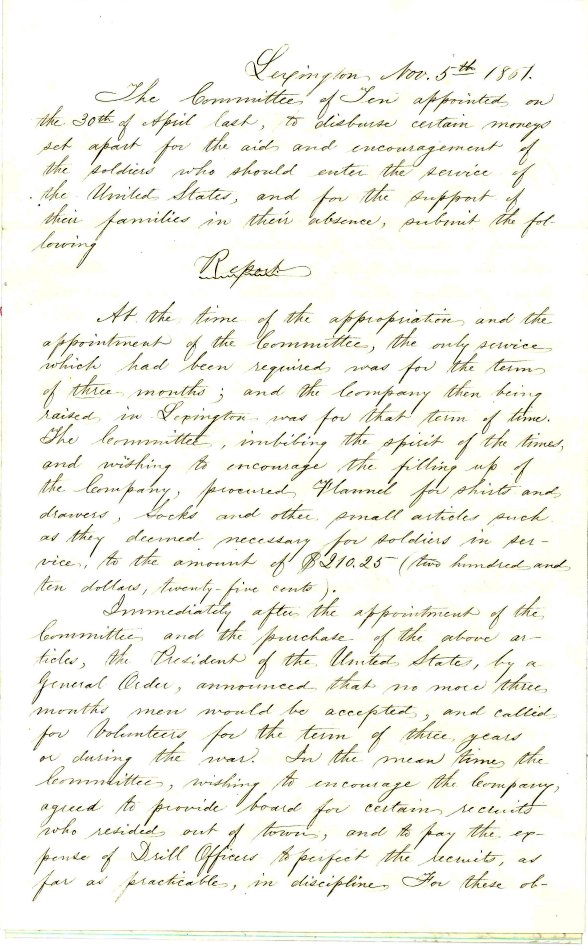 Lexington, Nov. 5th 1861.
The Committee of Ten appointed on
the 30th of April last, to disburse certain moneys
set apart for the aid and encouragement of
the soldiers who should enter the service of
the United States, and for the support of
their families in their absence, submit the fol-
lowing
Report
At the time of the appropriation and the
appointment of the Committee, the only service
which had been required was for the term
of three months; and the Company then being
raised in Lexington was for that term of time.
The Committee, imbibing the spirit of the times,
and wishing to encourage the filling up of
the Company, procured Flannel for shirts and
drawers, Socks and other small articles such
as they deemed necessary for soldiers in ser-
vice, to the amount of $210.25 (two hundred and
ten dollars, twenty-five cents).
Immediately after the appointment of the
Committee and the purchase of the above ar-
ticles, the President of the United States, by a
General Order, announced that no more three
months men would be accepted, and called
for Volunteers for the term of three years
or during the war. In the mean time the
Committee, wishing to encourage the Company,
agreed to provide board for certain recruits
who resided out of town, and to pay the ex-
pense of Drill Officers to perfect the recruits, as
far as practicable, in discipline. For these ob-